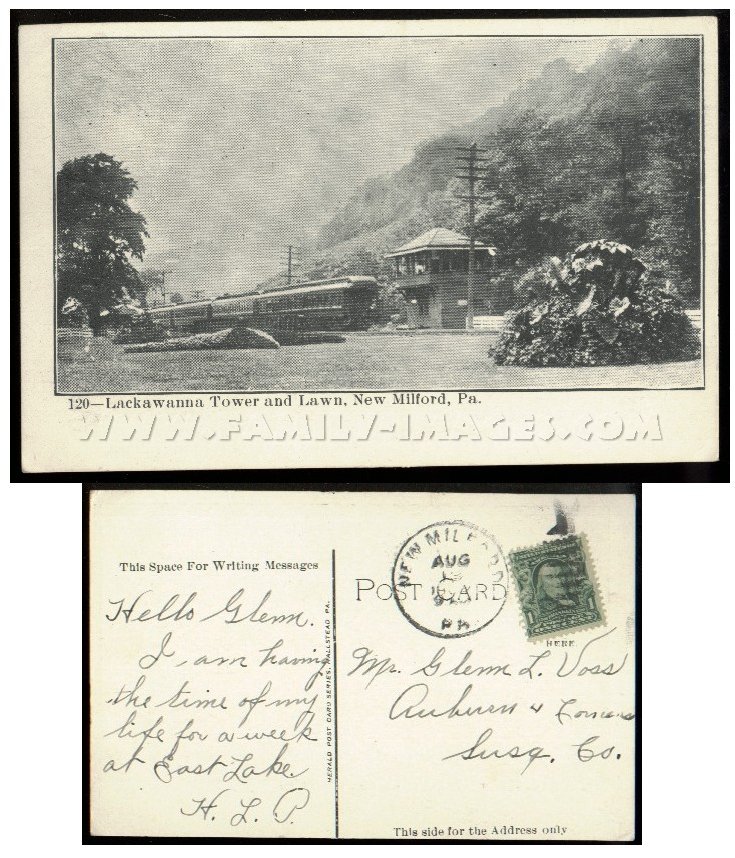 120—Lackawanna Tower and Lawn, New Milford, Pa.
WWW.FAMILY-IMAGES.COM
This Space For Writing Messages
Hello Glenn.
I am having
the time of my
life for a week
at East Lake.
H. L. P.
HERALD POST CARD SERIES, HALLSTEAD PA.
POST CARD
NEW MILFORD
AUG
PA
1
HERE
Mr. Glenn L. Voss
Auburn 4 Corners
Susq. Co.
This side for the Address only